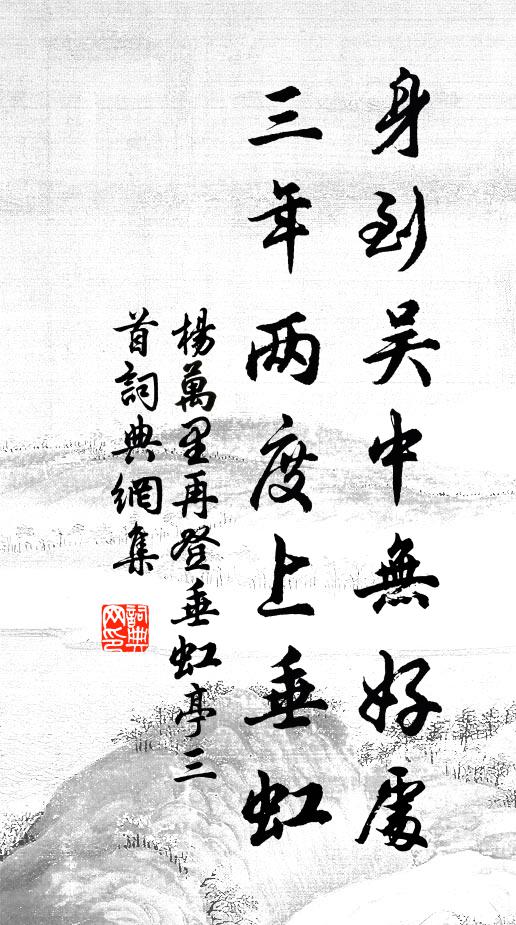 身到吴中無好處
三年两度上垂虹
楊萬里再登垂虹亭三
首詞典網集
詞典
网印